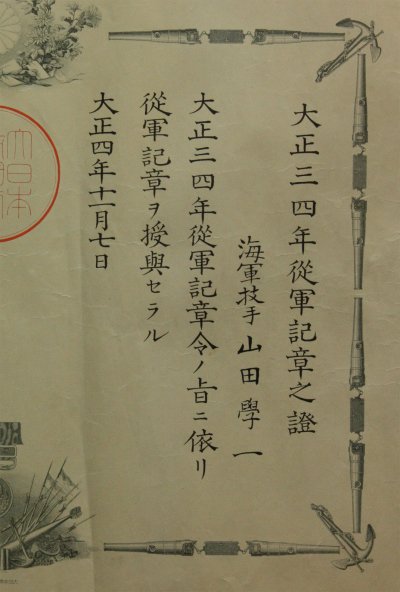 大正三四年從軍記章之證
海軍技手 山田學一
大正三四年從軍記章令ノ旨ニ依リ
從軍記章ヲ授與セラル
大正四年十一月七日
大日本